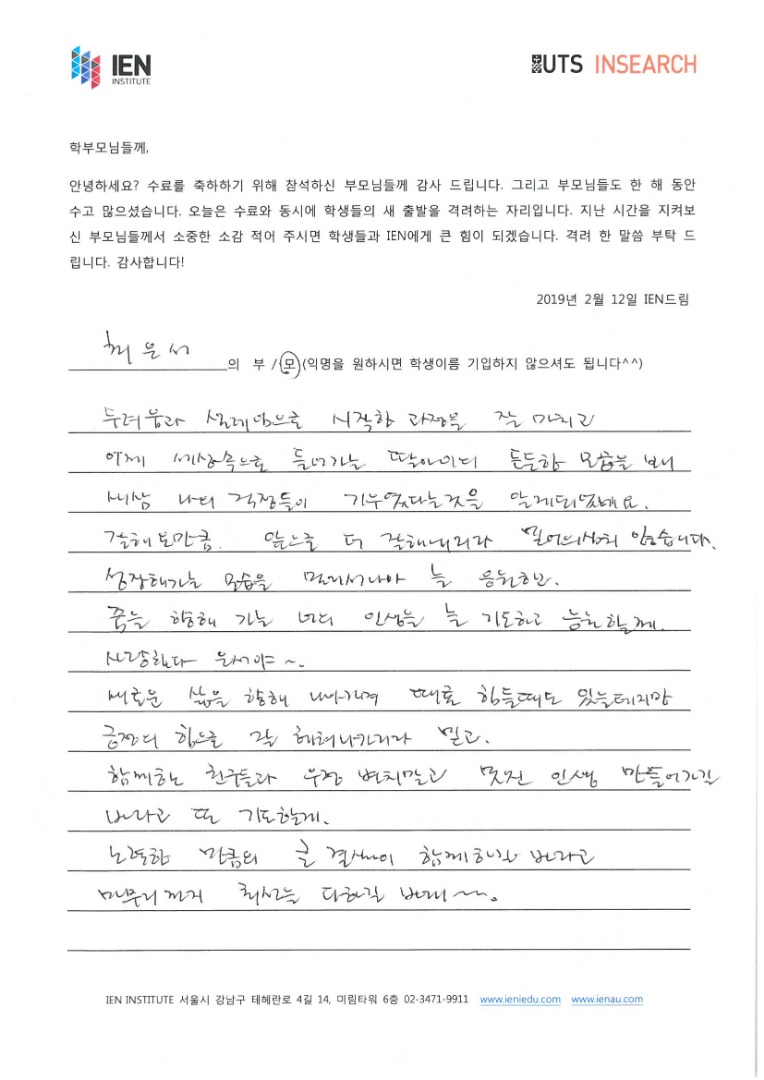 IEN
INSTITUTE
UTS INSEARCH
학부모님들께,
안녕하세요? 수료를 축하하기 위해 참석하신 부모님들께 감사 드립니다. 그리고 부모님들도 한 해 동안
수고 많으셨습니다. 오늘은 수료와 동시에 학생들의 새 출발을 격려하는 자리입니다. 지난 시간을 지켜보
신 부모님들께서 소중한 소감 적어 주시면 학생들과 IEN에게 큰 힘이 되겠습니다. 격려 한 말씀 부탁 드
립니다. 감사합니다!
2019년 2월 12일 IEN드림
최은서 의 부 / 모 (익명을 원하시면 학생이름 기입하지 않으셔도 됩니다^^)
두려움과 설레임으로 시작한 과정을 잘 마치고
이제 세상속으로 들어가는 딸아이의 든든한 모습을 보니
새삼 나의 걱정들이 기우였다는것을 알게되었네요.
잘해온만큼. 앞으로 더 잘해내리라 믿어의심치 않습니다.
성장해가는 모습을 멀리서나마 늘 응원하고.
꿈을 향해 가는 너의 인생을 늘 기도하고 응원할께.
사랑한다 은서야~.
새로운 삶을 향해 나아가며 때로 힘들때도 있을테지만
긍정의 힘으로 잘 헤쳐나가리라 믿고.
함께하는 친구들과 우정 변치말고 멋진 인생 만들어가길
바라고 또 기도할게.
노력한 만큼의 큰 결실이 함께하길 바라고
마무리까지 최선을 다하길 바래~~.
IEN INSTITUTE 서울시 강남구 테헤란로 4길 14, 미림타워 6층 02-3471-9911 www.ieniedu.com www.ienau.com